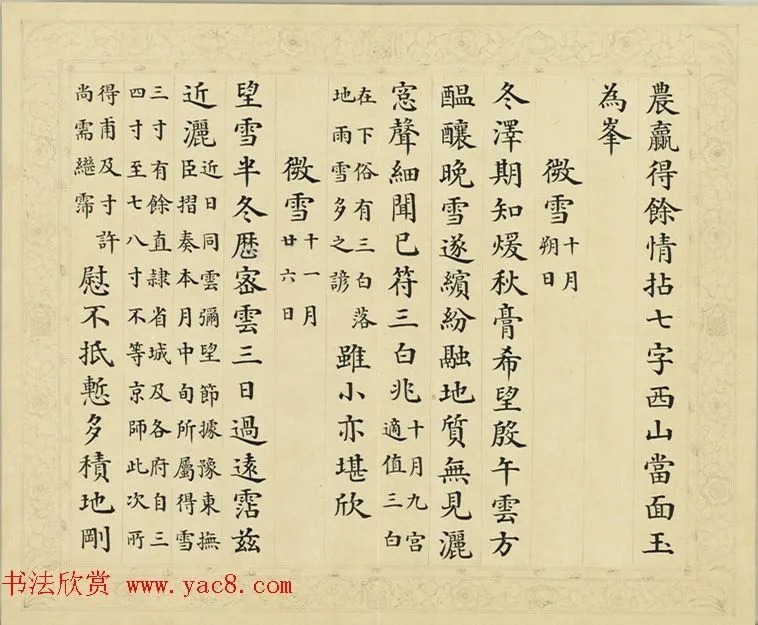 農贏得餘情拈七字西山當面玉
為峯
微雪十月
朔日
冬澤期知煖秋膏希望殷午雲方
醖釀晚雪遂繽紛融地質無見灑
窓聲細聞已符三白兆十月九宮
適值三白
在下俗有三白落
地雨雪多之諺雖小亦堪欣
微雪十一月
廿六日
望雪半冬歷密雲三日過遠霑茲
近灑近日同雲彌望節據豫東撫
臣摺奏本月中旬所屬得雪
三寸有餘直隸省城及各府自三
四寸至七八寸不等京師此次所
得甫及寸許
尚需繼霈慰不抵慙多積地剛
书法欣赏 www.yac8.com